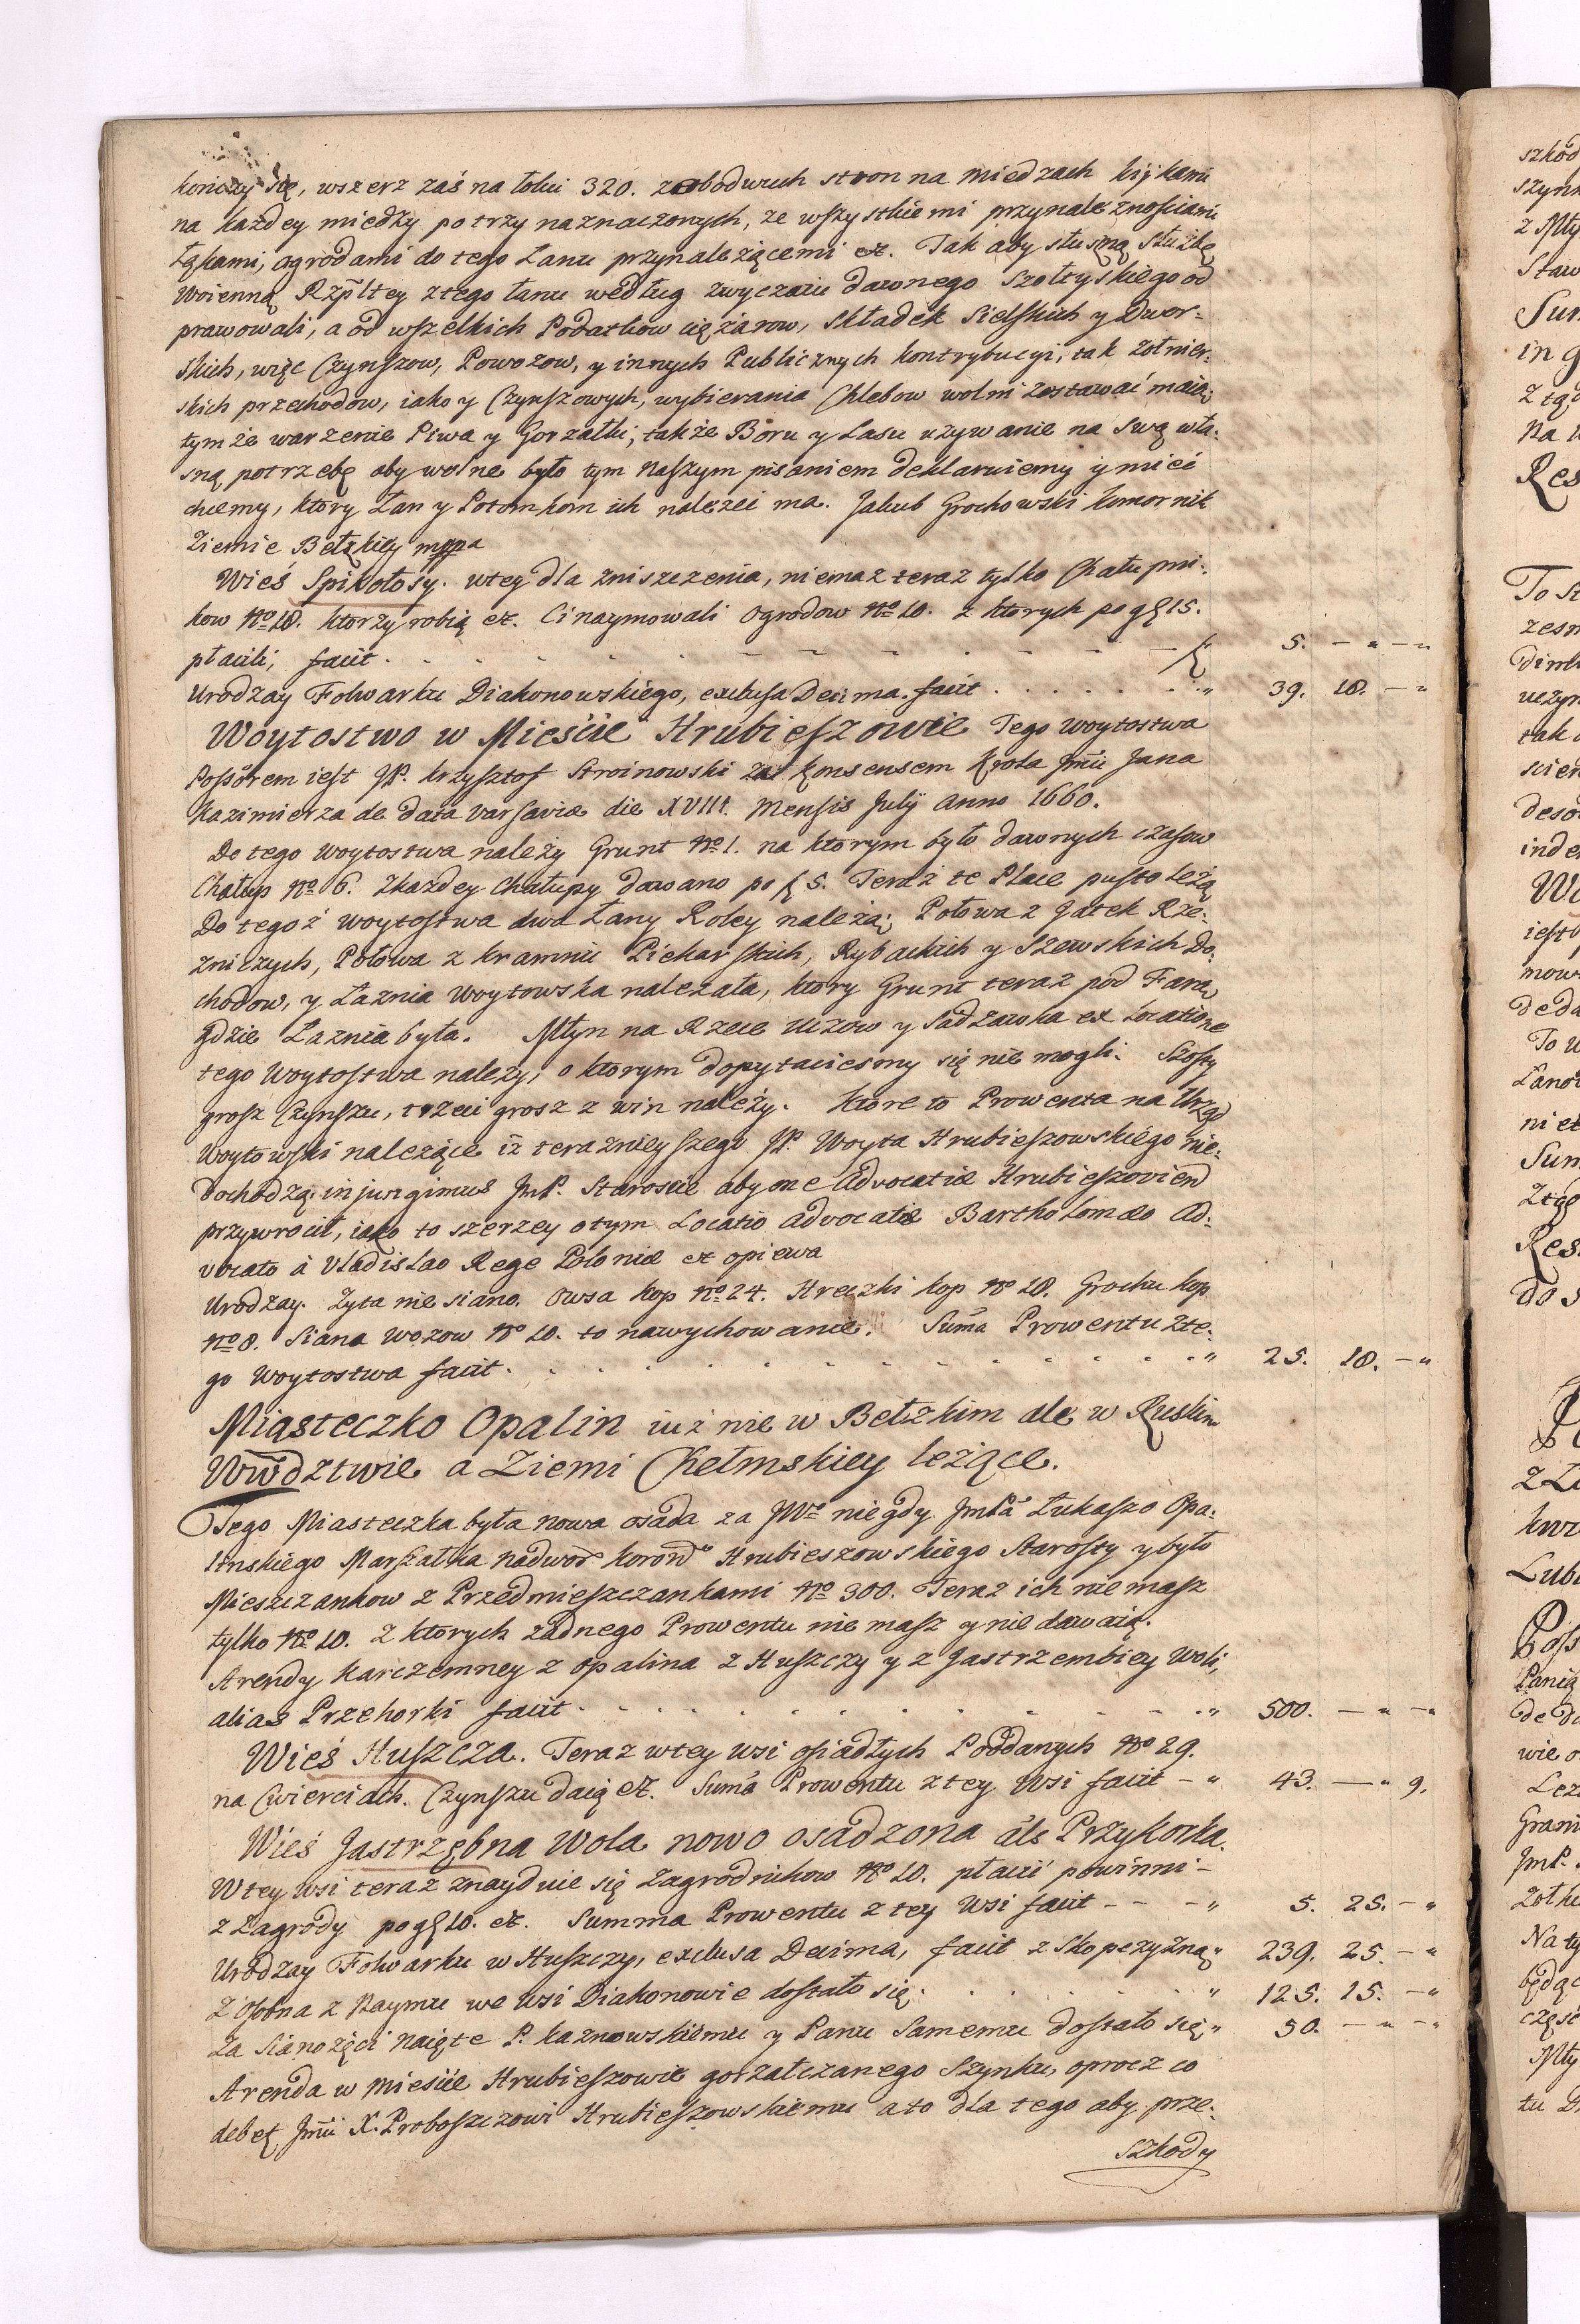 kończy się, wszerz zaś na łokci 320. z obodwuch stron na miedzach kijkami
na każdey miedzy po trzy naznaczonych, ze wszystkiemi przynależnościami
Łąkami, ogrodami do tego Łanu przynależącemi etc. Tak aby słuszną służbę
Woienną Rzpltey z tego łanu według zwyczaiu dawnego Szołtyskiego od
prawowali, a od wszelkich Podatkow ciężarow, Składek Sielskich y Dwor-
skich, więc Czynszow, Powozow, y innych Publicznych kontrybucyi, tak żołnier-
skich przechodow, iako y Czynszowych, wybierania Chlebow wolni zostawać maią,
tym że warzenie Piwa y Gorzałki, także Boru y Lasu używanie na Swą wła-
sną potrzebę aby wolne było tym Naszym pisaniem deklaruiemy y mieć
chcemy, ktory Łan y Potomkom ich należeć ma. Jakub Grochowski komornik
Ziemie Bełzkiey mppa
Wieś Spikołosy. w tey dla zniszczenia, niemasz teraz tylko Chałupni-
kow No 18. ktorzy robią etc. Ci naymowali Ogrodow No 10. z ktorych po gl 15.
płacili, facit 5. — " — "
Urodzay Folwarku Diakonowskiego, exclusa Decima. facit 39. 18. — "
Woytostwo w Mieście Hrubieszowie Tego woytostwa
Possorem iest JP. Krzysztof Stroinowski za konsensem Krola Jmci Jana
Kazimierza de data Varsaviæ die XVIII. Mensis Julij Anno 1660.
Do tego Woytostwa należy Grunt No 1. na ktorym było dawnych czasow
Chałup No 6. z każdey Chałupy dawano po f 5. Teraz te Place pusto leżą
Do tegoż Woytostwa dwa Łany Roley należą; Połowa z Jatek Rze-
zniczych, Połowa z kramnic Piekarskich, Rybackich y Szewskich Do-
chodow, y Łaznia Woytowska należała, ktory Grunt teraz pod Farą,
gdzie Łaznia była. Młyn na Rzece Uczow y Sadzawka ex Locatione
tego Woytostwa należy, o ktorym dopytaciesmy się nie mogli. Szosty
grosz Czynszu, trzeci grosz z win należy. Ktore to Prowenta na Urząd
Woytowski należące iż teraznieyszego JP. Woyta Hrubieszowskiego nie-
dochodzą; injungimus JmP. Staroscie aby one Advocatiæ Hrubieszovien
przywrocił, iako to szerzey o tym Locatio Advocatiæ Bartholomæo Ad-
vocato à Vladislao Rege Poloniæ etc opiewa
Urodzay. Zyta nie siano. Owsa kop No 24. Hreczki kop No 18. Grochu kop
No 8. Siana wozow No 10. to na wychowanie. Suma Prowentu z te-
go Woytostwa facit 25. 18. — "
Miasteczko Opalin iuż nie w Bełzkim ale w Ruskim
Wwdztwie a Ziemi Chełmskiey leżące.
Tego Miasteczka była nowa osada za JWo niegdy JmPa Łukasza Opa-
linskiego Marszałka Nadwor Koronno Hrubieszowskiego Starosty y było
Mieszczankow z Przedmieszczankami No 300. Teraz ich nie masz
tylko No 10. z ktorych żadnego Prowentu nie masz y nie dawaią.
Arendy karczemney z Opalina z Huszczy y z Jastrzembiey Woli,
alias Przehorki facit 500. — " — "
Wieś Huszcza. Teraz w tey wsi osiadłych Poddanych No 29.
na Cwierciach. Czynszu daią etc. Suma Prowentu z tey Wsi facit — " 43. — " 9.
Wieś Jastrzębna Wola nowo osadzona als Przykorka.
W tey wsi teraz znayduie się Zagrodnikow No 10. płacić powinni
z Zagrody po gl 10. etc. Summa Prowentu z tey Wsi facit — — " 5. 25. — "
Urodzay Folwarku w Huszczy, exclusa Decima, facit z Skopczyzną " 239. 25. — "
Z osobna z Naymu we Wsi Diakonowie dostało się 125. 15. — "
Za Sianożęci naięte P. Kaznowskiemu y Panu Samemu dostało się " 50. — " — "
Arenda w mieście Hrubieszowie gorzałczanego Szynku, oprocz co
debet Jmci X. Proboszczowi Hrubieszowskiemu a to dla tego aby prze-
szkody